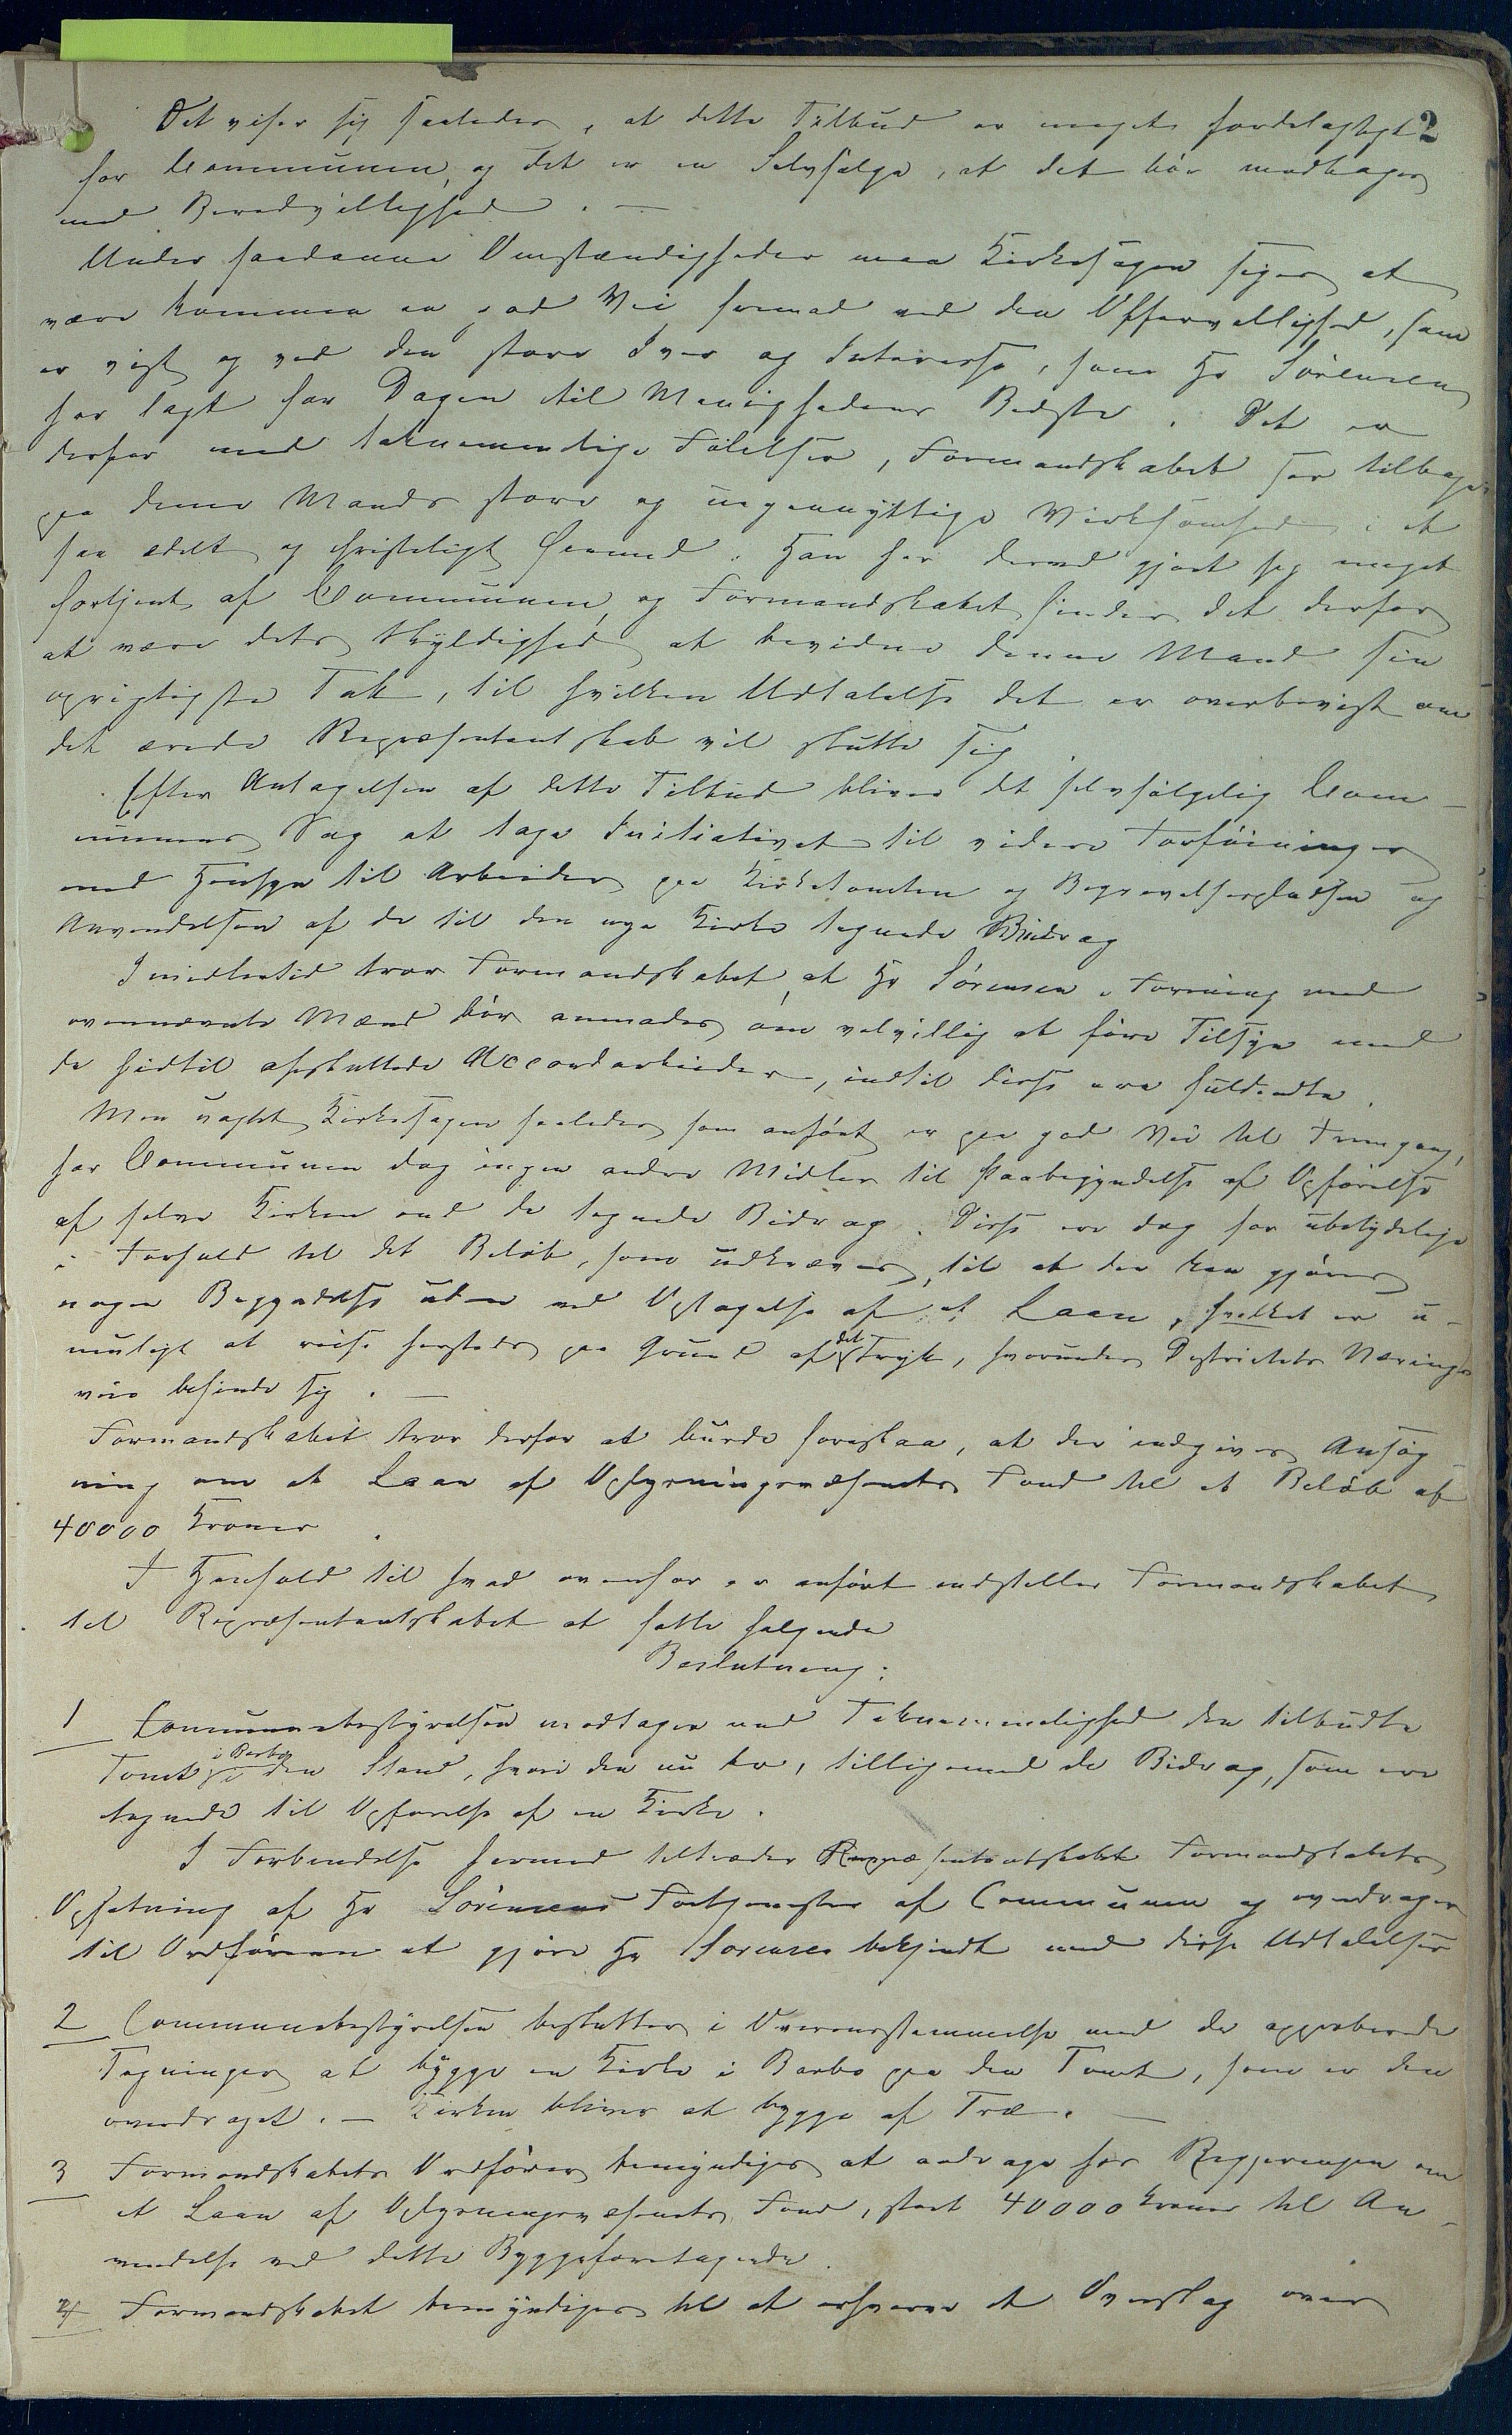 2
Det viser sig saaledes, at dette Tilbud er meget fordelagtigt
for Communen, og det er en Selvfølge, at det bør modtages
med Beredvillighed. —
Under saadanne Omstændigheder maa Kirkesagen siges at
være kommen en god Vei fremad ved den Offervillighed, som
er vist og ved den store Iver og Interesse, som Hr Sørensen
har lagt for Dagen til Menighedens Bedste. Det er
derfor med taknemmelige Følelser, Formandskabet ser tilbage
paa denne Mands store og uegennyttige Virksomhed i et
saa ædelt og christeligt Øiemed. Han har derved gjort sig meget
fortjent af Communen, og Formandskabet finder det derfor
at være dets Skyldighed at bevidne denne Mand sin
oprigtigste Tak, til hvilken Udtalelse det er overbevist om
det ærede Repræsentantskab vil slutte sig.
Efter Antagelsen af dette Tilbud bliver det selvfølgelig Com-
munens Sag at tage Initiativet til videre Forføininger
med Hensyn til Arbeider paa Kirketomten og Begravelsespladsen og
Anvendelsen af de til den nye Kirke tegnede Bidrag
Imidlertid tror Formandskabet, at Hr Sørensen i Forening med
ovennævnte Mænd bør anmodes om velvillig at føre Tilsyn med
de hidtil afsluttede Accordarbeider, indtil disse ere fuldendte.
Men uagtet Kirkesagen saaledes som anført er paa god Vei til Fremgang,
har Communen dog ingen andre Midler til Paabegyndelse af Opførelse
af selve Kirken end de tegnede Bidrag. Disse ere dog for ubetydelige
i Forhold til det Beløb, som udkræves, til at der kan gjøres
nogen Begyndelse uden ved Optagelse af et Laan, hvilket er u-
muligt at reise hersteds paa Grund af det Tryk, hvorunder Districtets Nærings
veie befinde sig. —
Formandskabet tror derfor at burde foreslaa, at der indgives Ansøg-
ning om et Laan af Oplysningsvæsenets Fond til et Beløb af
40000 Kroner.
I Henhold til hvad ovenfor er anført indstiller Formandskabet
til Repræsentantskabet at fatte følgende
Beslutning:
1 Communebestyrelsen modtager med Taknemmelighed den tilbudte
Tomt i Barbo i den Stand, hvori den nu er, tilligemed de Bidrag, som ere
tegnede til Opførelse af en Kirke.
I Forbindelse hermed tiltræder Repræsentantskabet Formandskabets
Opfatning af Hr Sørensens Fortjenester af Communen og overdrager
til Ordføreren at gjøre Hr Sørensen bekjendt med disse Udtalelser
2 Communebestyrelsen beslutter i Overensstemmelse med de approberede
Tegninger at bygge en Kirke i Barbo paa den Tomt, som er den
overdraget. — Kirken bliver at bygge af Træ. —
3 Formandskabets Ordfører bemyndiges at andrage hos Regjeringen om
et Laan af Oplysningsvæsenets Fond, stort 40000 Kroner til An-
vendelse ved dette Byggeforetagende.
4 Formandskabet bemyndiges til at erhverve et Overslag over